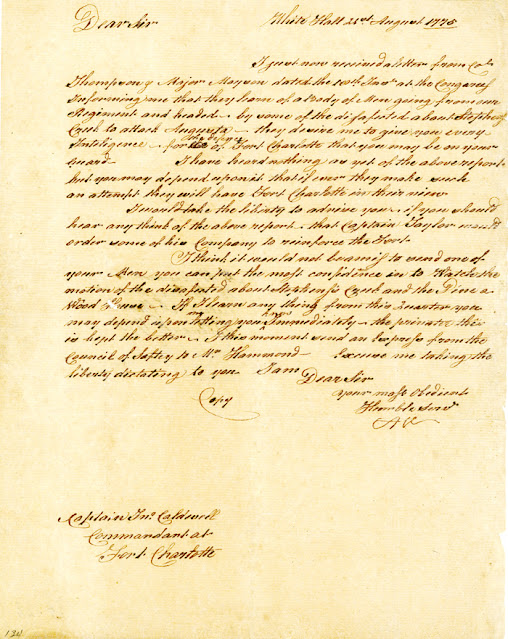 Dear Sir White Hall 21st August 1775
I just now received a letter from Col
Thompson & Major Mayson dated the 18th at the Congarees
Informing me that they learn of a Body of Men going from our
Regiment and headed by some of the disafected about Stephens
Creek to attack Augusta they desire me to give you every
Inteligence for of Fort Charlotte that you may be on your
Guard I have heard nothing as yet of the above report
but you may depend upon it that if ever they make such
an attempt they will have Fort Charlotte in their view
I would take the liberty to advise you if you should
hear any think of the above report that Captain Taylor would
order some of his Company to reinforce the Fort
I think it would not be amiss to send one of
your Men you can put the most confidence in to Watch the
motion of the disafected about Stephens Creek and the Pine
Wood House If I learn any thing from this Quarter you
may depend upon letting you Immediately the private this
is kept the better I this moment send an Express from the
Council of Safety to Mr Hammond Excuse me taking the
liberty dictating to you I am
Dear Sir
your most Obedient
Humble Servt
Copy
AW
Captain Jno Caldwell
Commandant at
Fort Charlotte